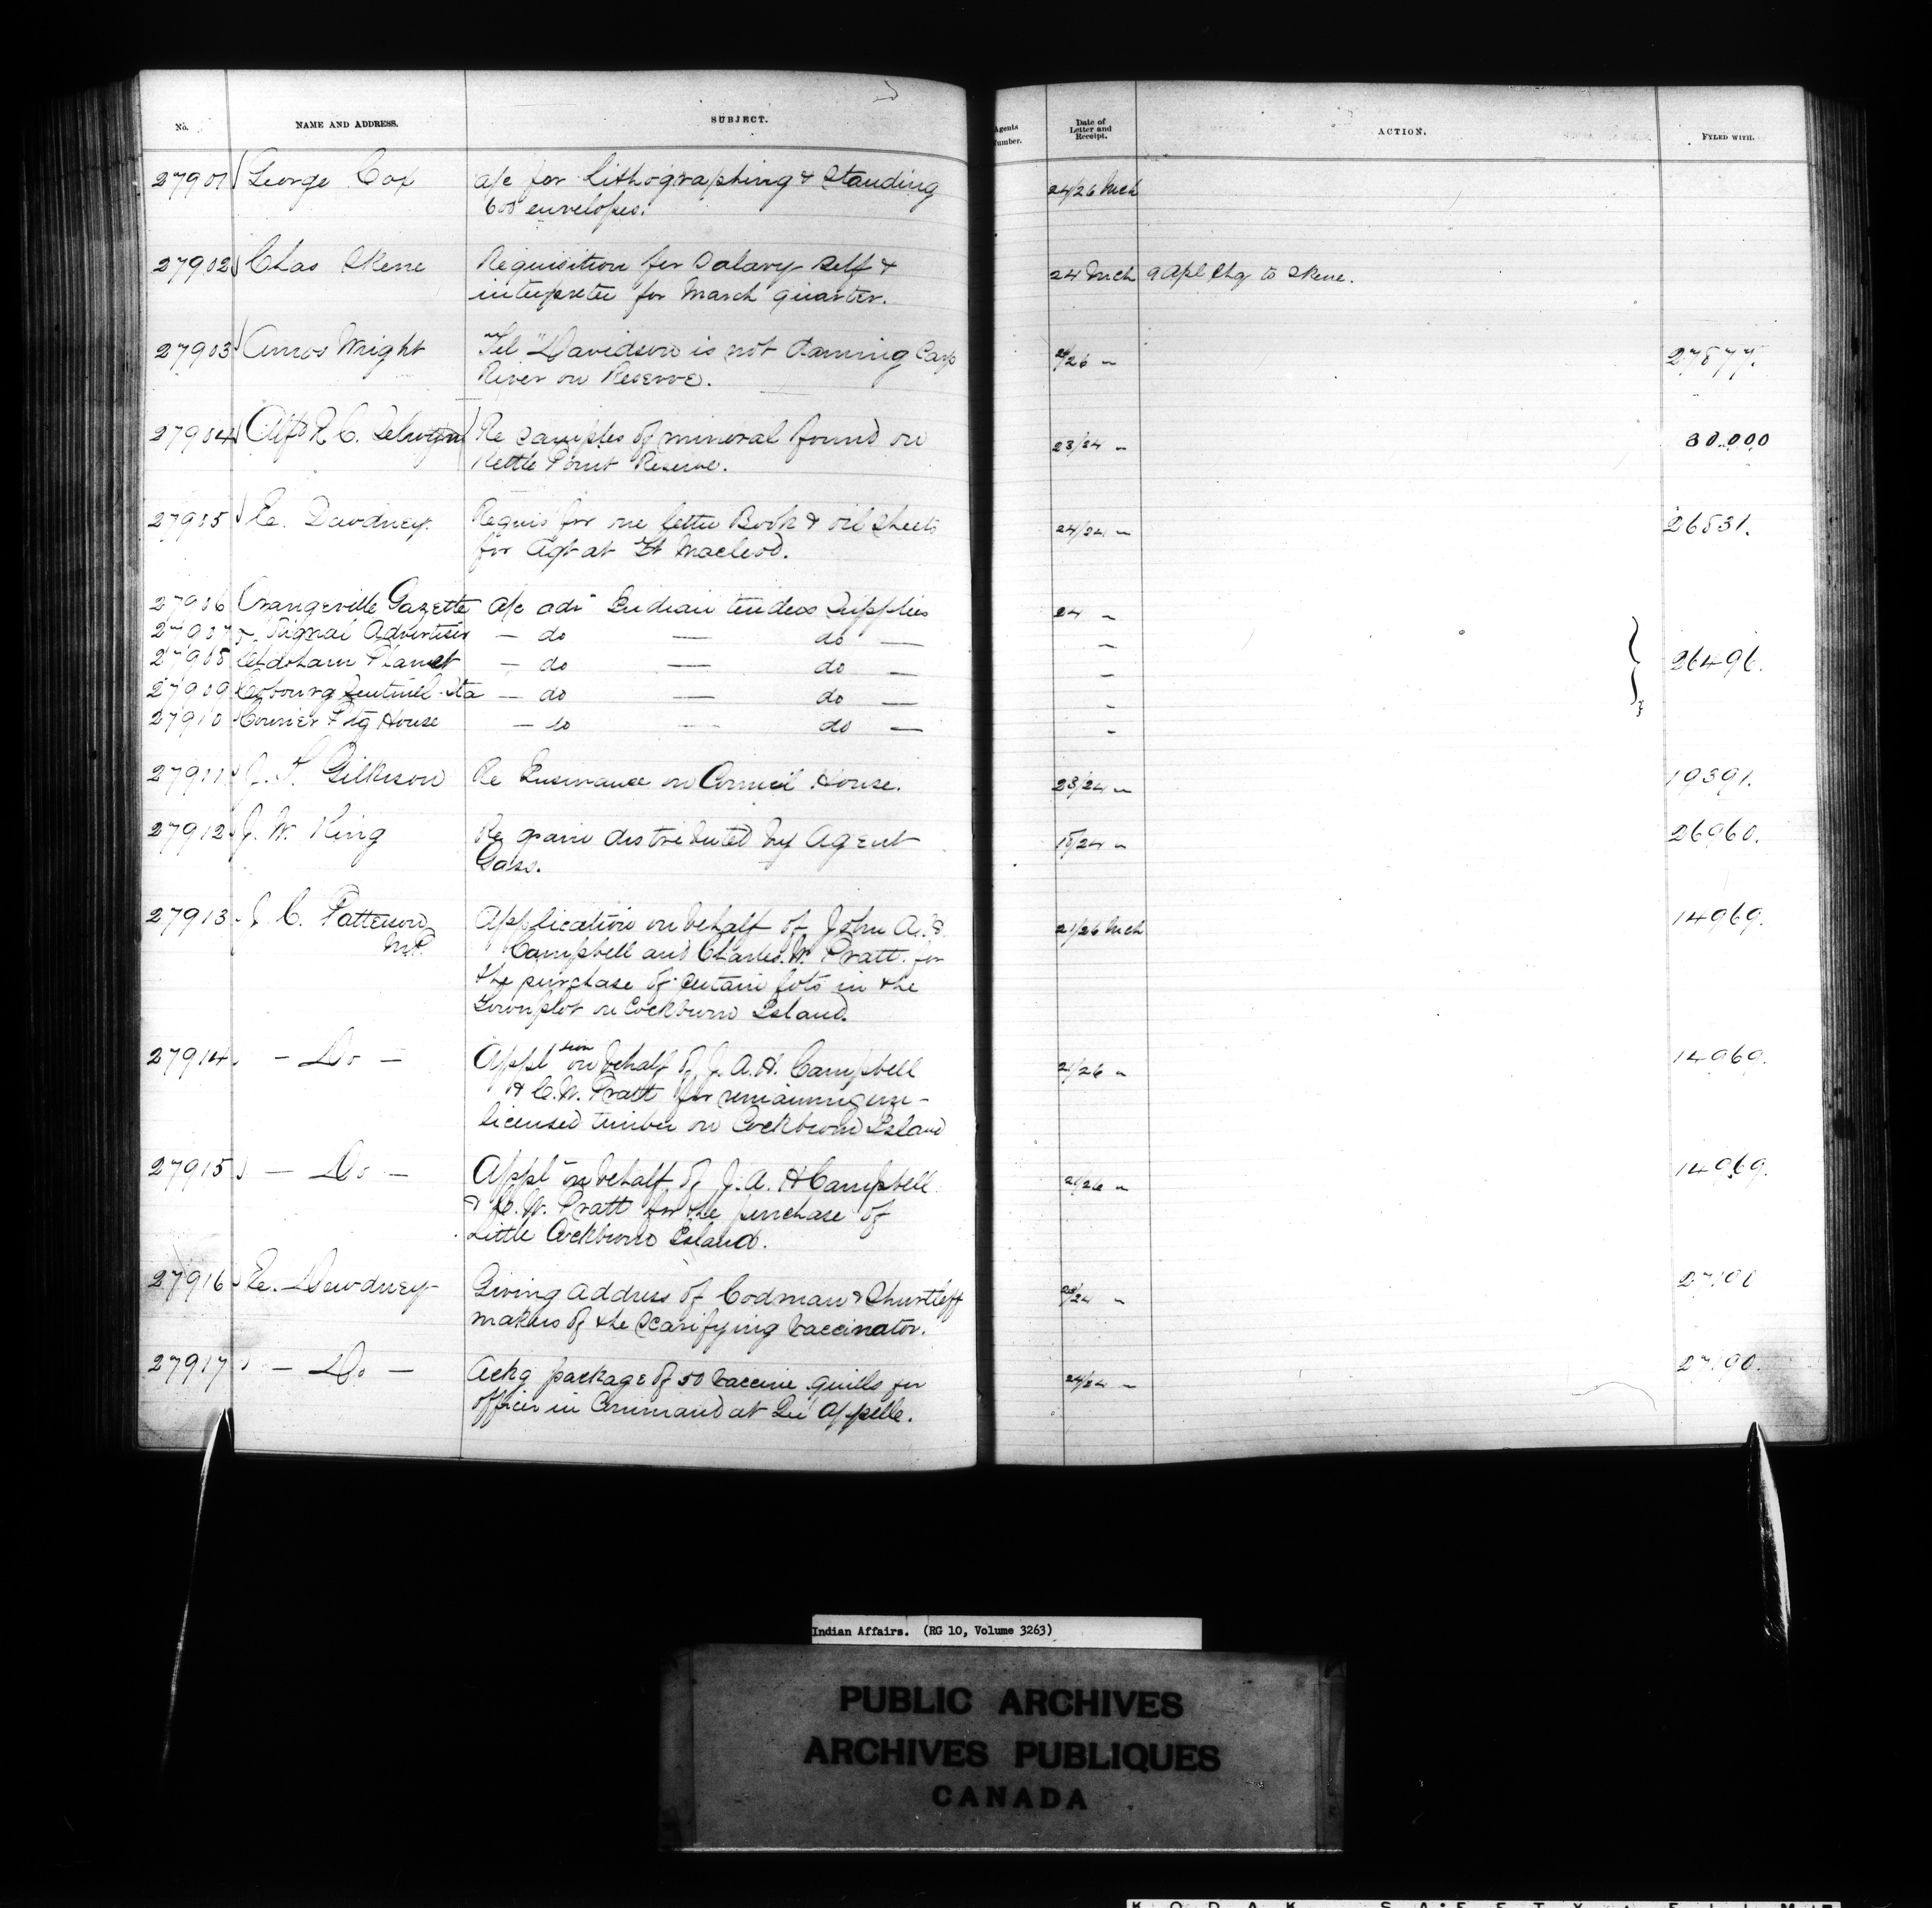 No. NAME AND ADDRESS. SUBJECT. Agents Number. Date of Letter and Receipt. ACTION. FYLED WITH.
27901 George Cox a/c for Lithographing & Standing 24/26 Mch
600 envelopes.
27902 Chas Skene Requisition for Salary Self & 24 Mch 9 Apl Chq to Skene.
interpreter for March quarter.
27903 Amos Wright "Tel" Davidson is not daming Carp /26 " 27877.
River on Reserve.
27904 Alfd R. C. Selwyn Re samples of mineral found on 23/24 " 30.000
Kettle Point Reserve.
27905 E. Dewdney Requis for one letter Book & oil Sheets 24/24 " 26531.
for Agt at Ft Macleod.
27906 Orangeville Gazette a/c adv Indian tenders Supplies 24 "
27907 Signal Advertiser — do — do — "
27908 Chatham Planet — do — do — " 26496.
27909 Cobourg Sentinel Sta — do — do — "
27910 Courier Ptg House — do — do — "
27911 J. T. Gilkison Re Insurance on Council House. 23/24 " 19391.
27912 J. W. King Re grain distributed by Agent 15/24 " 26960.
Gass.
27913 J. C. Patterson Application on behalf of John A. H. 21/26 Mch 14969.
M.P. Campbell and Charles. W. Pratt. for
the purchase of certain lots in the
Townplot on Cockburn Island.
27914 — Do — Appltion on behalf of J. A. H. Campbell 21/26 " 14969.
& C. W. Pratt for remaining un-
licensed timber on Cockburn Island
27915 — Do — Appln on behalf of J. A. H Campbell 21/26 " 14969.
& C. W. Pratt for the purchase of
Little Cockburn Island.
27916 E. Dewdney Giving address of Codman & Shurtleff /24 " 27190
makers of the Scarifying Vaccinator.
27917 — Do — Ackg package of 50 Vaccine quills for 24/24 " 27190.
officer in Command at Qu'Appelle.
Indian Affairs. (RG 10, Volume 3263)
PUBLIC ARCHIVES
ARCHIVES PUBLIQUES
CANADA
KODAK SAFETY FILM